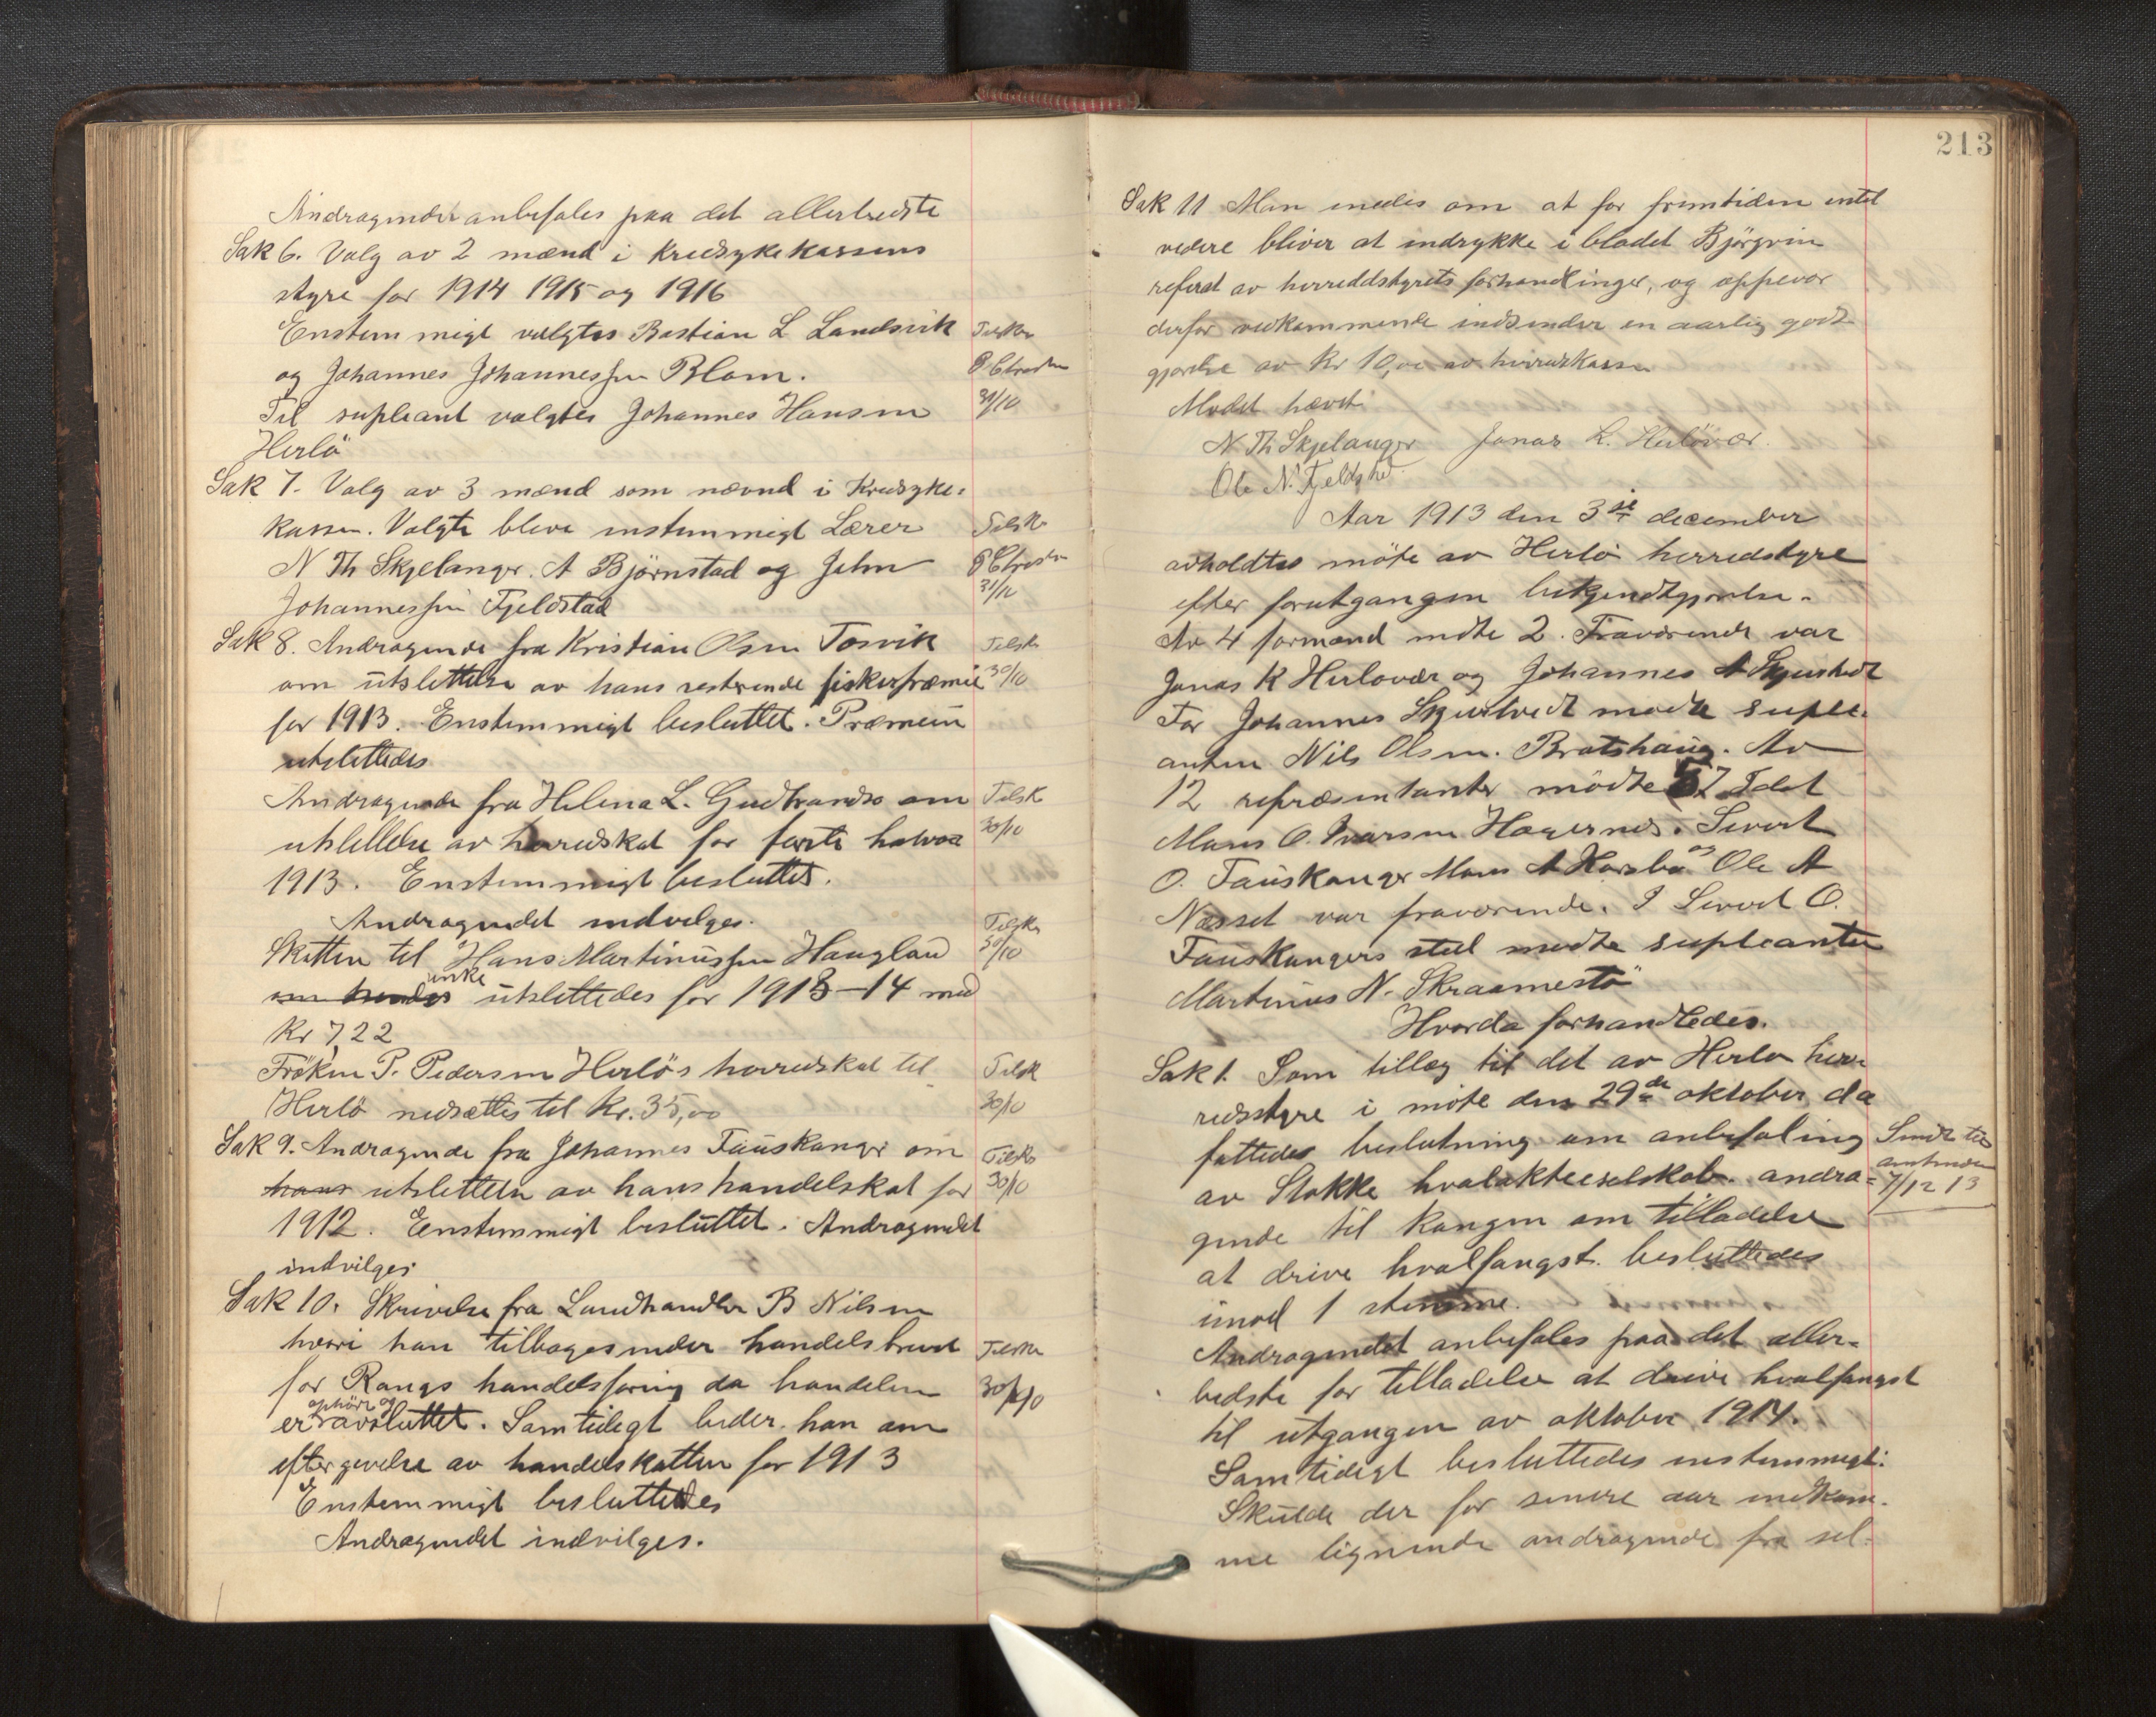 Andragendet anbefales paa det allerbedste
Sak 6. Valg av 2 mænd i Kredsykekassens
styre for 1914 1915 og 1916
Enstemmigt valgtes Bastian L Landsvik
og Johannes Johannessen Blom.
Til supleant valgtes Johannes Hansen
Herlö
Sak 7. Valg av 3 mænd som nævnd i Kredsyke-
kassen. Valgte bleve enstemmigt Lærer
N Th Skjelanger. A Björnstad og John
Johannessen Fjeldstad
31/10
31/10
Sak 8. Andragende fra Kristian Olsen Tosvik
om utslettelse av hans resterende fiskerpræmie
for 1913. Enstemmigt besluttet. Præmien
utslettedes
Tilsk
30/10
Andragende fra Helena L. Gudbrands om
utslettelse av herredskat for første halvaar
1913. Enstemmigt besluttet.
Andragendet indvilges.
Tilsk
30/10
Skatten til Hans Martinussen Hauglan
enke
om hendes utslettedes for 1913-14 med
Kr 7,22
Tilsk
30/10
Fröken P. Pedersen Herlös herredskat til
Herlö nedsættes til Kr. 35,00
Tilsk
30/10
Sak 9. Andragende fra Johannes Fauskanger om
hans utslettelse av hans handelskat for
1912. Eenstemmigt besluttet. Andragendet
indvilges
Tilsk
30/10
Sak 10. Skrivelse fra Landhandler B Nilsen
hvori han tilbagesender handelsbrevet
for Rongs handelsforing da handelen
ophört og
er avsluttet. Samtidigt beder han om
eftergivelse av handelskatten for 1913
Enstemmigt besluttedes
Andragendet indvilges.
Tilsk
30/10
213
Sak 11 Man enedes om at for fremtiden intet
videre bliver at indrykke i bladet Björgvin
referat av herreddstyrets forhandlinger, og
derfor vedkommende indsender en aarlig godt
gjørelse av Kr 10,00 av herredskassen
Mødet hævet.
N Th Skjelanger Jonas K. Herlövær.
Ole N. Fjeldstad.
Aar 1913 den 3die december
avholdtes möte av Herlö herredstyre
efter forutgangen bekjendtgjørelse.
Av 4 formænd mdte 2. Fraværende var
Jonas K Herlovær og Johannes A Skjerstvedt
For Johannes Skjerstvedt mødte suple-
anten Nils Olsen. Bratshaug. Av
12 repræsentanter mödte 7 Idet
Mons O. Ivarsen Hagenes. Severt
O. Fauskanger Mons A Harsbø og Ole A
Næsset var fraværende. I Severt O.
Fauskangers sted mødte supleanten
Martinus N. Skraamestö
Hvorda forhandledes.
Sak 1. Som tillæg til det av Herlø her-
redsstyre i möte den 29de oktober da
fattedes beslutning om anbefaling
av Stokke hvalaktieselskab. andra-
gende til Kongen om tilladelse
at drive hvalfangst. besluttedes
imod 1 stemme.
Andragendet anbefales paa det aller-
bedste for tilladelse at drive hvalfangst
til utgangen av oktober 1914.
Samtidigt besluttedes enstemmigt:
Skulde der for senere aar indkom-
me lignende andragende fra sel-
Sendt til
amtmanden
7/12 13